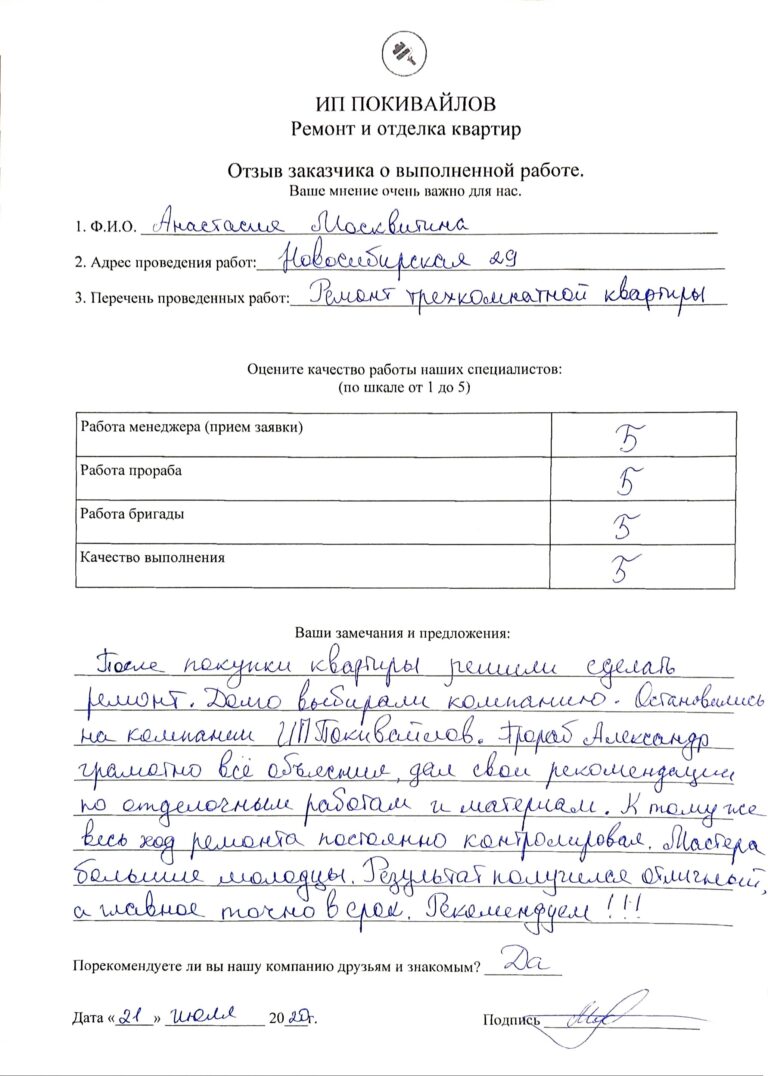 ИП ПОКИВАЙЛОВ
Ремонт и отделка квартир
Отзыв заказчика о выполненной работе.
Ваше мнение очень важно для нас.
1. Ф.И.О. Анастасия Москвитина
2. Адрес проведения работ: Новосибирская 29
3. Перечень проведенных работ: Ремонт трехкомнатной квартиры
Оцените качество работы наших специалистов:
(по шкале от 1 до 5)
Работа менеджера (прием заявки) 5
Работа прораба 5
Работа бригады 5
Качество выполнения 5
Ваши замечания и предложения:
После покупки квартиры решили сделать
ремонт. Долго выбирали компанию. Остановились
на компании ИП Покивайлов. Прораб Александр
грамотно всё объяснил, дал свои рекомендации
по отделочным работам и материам. К тому же
весь ход ремонта постоянно контролировал. Мастера
большие молодцы. Результат получился отличный,
а главное точно в срок. Рекомендуем!!!
Порекомендуете ли вы нашу компанию друзьям и знакомым? Да
Дата «21» июля 2020г. Подпись